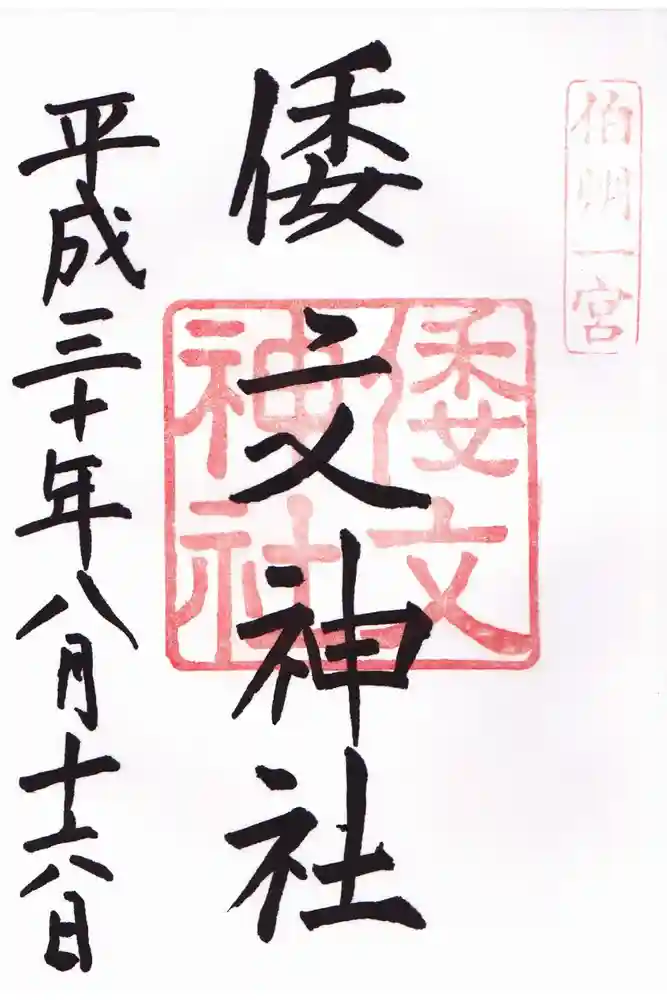 伯州一宮
倭文神社
倭文神社
平成三十年八月十六日